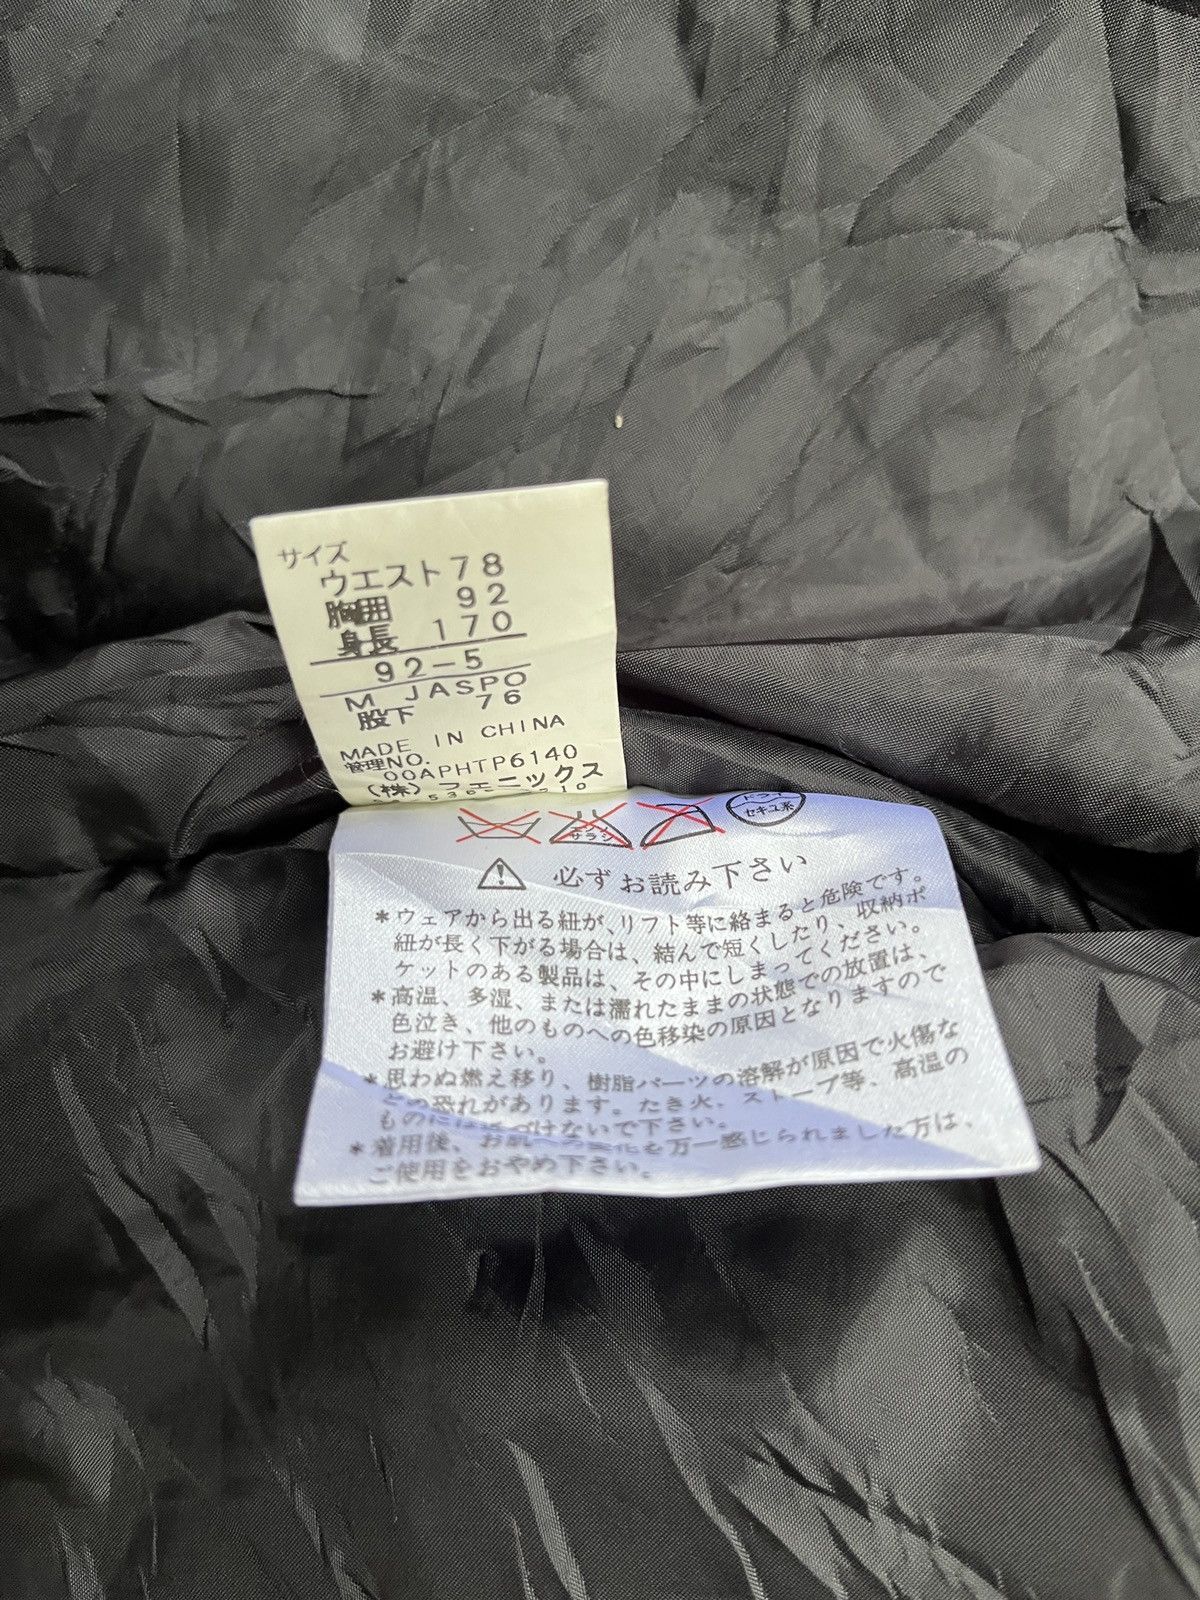 サイズ
ウエスト78
胸囲 92
身長 170
92-5
M JASPO
股下 76
MADE IN CHINA
管理NO.
00APHTP6140
(株)フェニックス
エンソ
サラシ
ドライ
セキユ系
必ずお読み下さい
*ウェアから出る紐が、リフト等に絡まると危険です。
紐が長く下がる場合は、結んで短くしたり、収納ポ
ケットのある製品は、その中にしまってください。
*高温、多湿、または濡れたままの状態での放置は、
色泣き、他のものへの色移染の原因となりますので
お避け下さい。
*思わぬ燃え移り、樹脂パーツの溶解が原因で火傷な
どの恐れがあります。たき火、ストーブ等、高温の
ものには近づけないで下さい。
*着用後、お肌への変化を万一感じられました方は、
ご使用をおやめ下さい。